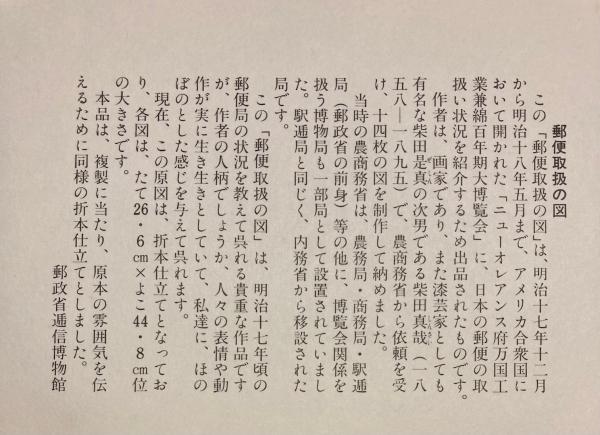 郵便取扱の図
この「郵便取扱の図」は、明治十七年十二月
から明治十八年五月まで、アメリカ合衆国に
おいて開かれた「ニューオレアンス府万国工
業兼綿百年期大博覧会」に、日本の郵便の取
扱い状況を紹介するため出品されたものです。
作者は、画家であり、また漆芸家としても
有名な柴田是真の次男である柴田真哉（一八
五八―一八九五）で、農商務省から依頼を受
け、十四枚の図を制作して納めました。
当時の農商務省は、農務局・商務局・駅逓
局（郵政省の前身）等の他に、博覧会関係を
扱う博物局も一部局として設置されていまし
た。駅逓局と同じく、内務省から移設された
局です。
この「郵便取扱の図」は、明治十七年頃の
郵便局の状況を教えて呉れる貴重な作品です
が、作者の人柄でしょうか、人々の表情や動
作が実に生き生きとしていて、私達に、ほの
ぼのとした感じを与えて呉れます。
現在、この原図は、折本仕立てとなってお
り、各図は、たて26・6㎝×よこ44・8㎝位
の大きさです。
本品は、複製に当たり、原本の雰囲気を伝
えるために同様の折本仕立てとしました。
郵政省逓信博物館